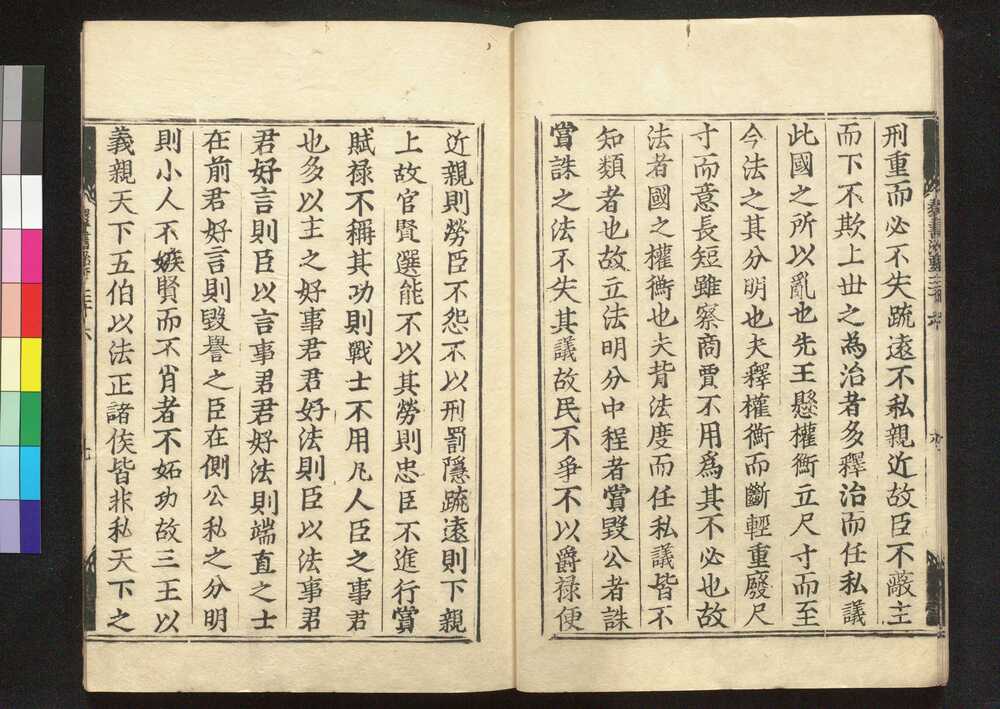 刑重而必不失疏遠不私親近故臣不蔽主
而下不欺上世之為治者多釋治而任私議
此國之所以亂也先王懸權衡立尺寸而至
今法之其分明也夫釋權衡而斷輕重廢尺
寸而意長短雖察商賈不用為其不必也故
法者國之權衡也夫背法度而任私議皆不
知類者也故立法明分中程者賞毀公者誅
賞誅之法不失其議故民不爭不以爵禄便
近親則勞臣不怨不以刑罰隱疏遠則下親
上故官賢選能不以其勞則忠臣不進行賞
賦禄不稱其功則戰士不用凡人臣之事君
也多以主之好事君君好法則臣以法事君
君好言則臣以言事君君好法則端直之士
在前君好言則毀譽之臣在側公私之分明
則小人不嫉賢而不肖者不妬功故三王以
義親天下五伯以法正諸侯皆非私天下之
群書治要三十六
九